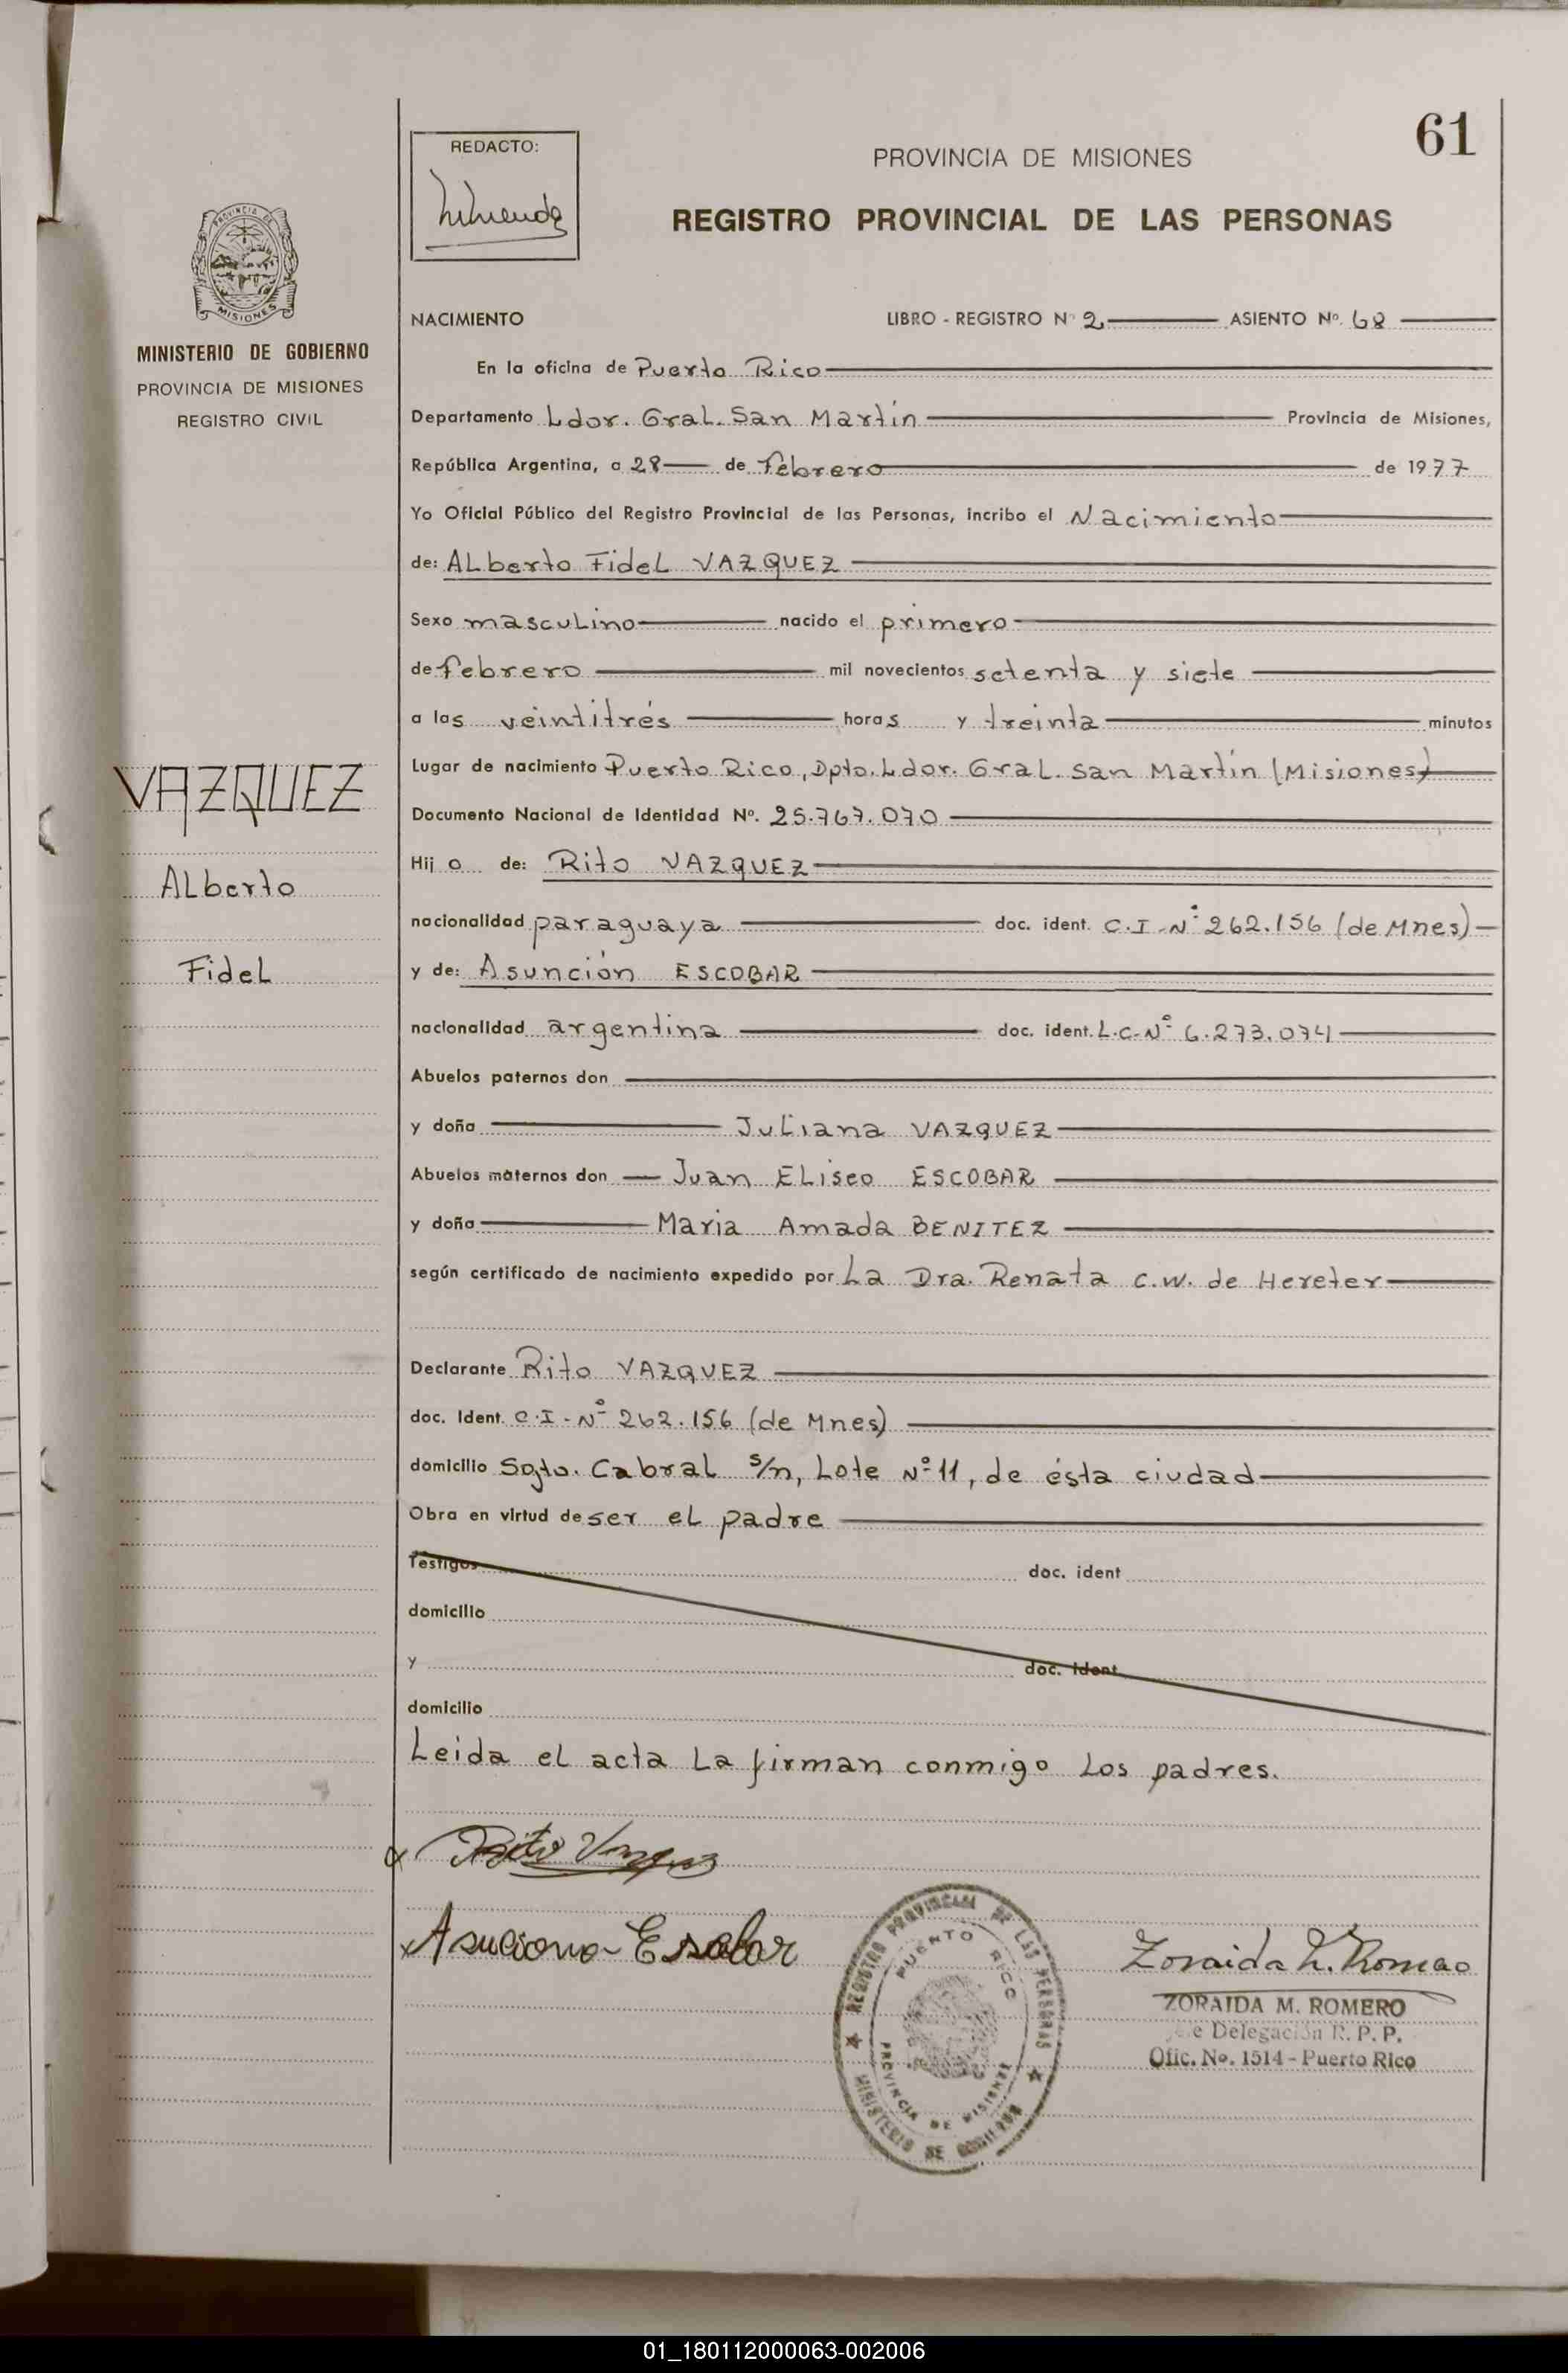 61
REDACTO:
PROVINCIA DE MISIONES
REGISTRO PROVINCIAL DE LAS PERSONAS
PROVINCIA DE
MISIONES
MINISTERIO DE GOBIERNO
PROVINCIA DE MISIONES
REGISTRO CIVIL
NACIMIENTO LIBRO - REGISTRO Nº 2 ASIENTO Nº. 68
En la oficina de Puerto Rico
Departamento Ldor. Gral. San Martín Provincia de Misiones,
República Argentina, a 28 de Febrero de 1977
Yo Oficial Público del Registro Provincial de las Personas, incribo el Nacimiento
de: Alberto Fidel VAZQUEZ
Sexo masculino nacido el primero
de febrero mil novecientos setenta y siete
a las veintitrés horas y treinta minutos
Lugar de nacimiento Puerto Rico, Dpto. Ldor. Gral. San Martín (Misiones)
Documento Nacional de Identidad Nº. 25.767.070
Hijo de: Rito VAZQUEZ
nacionalidad paraguaya doc. ident. C.I-Nº 262.156 (de Mnes)
y de: Asunción ESCOBAR
nacionalidad argentina doc. ident. L.C-Nº 6.273.074
Abuelos paternos don
y doña Juliana VAZQUEZ
Abuelos maternos don Juan Eliseo ESCOBAR
y doña Maria Amada BENITEZ
según certificado de nacimiento expedido por La Dra. Renata C.W. de Hereter
Declarante Rito VAZQUEZ
doc. Ident. C.I-Nº 262.156 (de Mnes)
domicilio Sgto. Cabral s/n, Lote Nº 11, de ésta ciudad
Obra en virtud de ser el padre
Testigos doc. ident
domicilio
y doc. ident
domicilio
Leida el acta la firman conmigo los padres.
VAZQUEZ
Alberto
Fidel
x Rito Vazquez
x Asuciona Escobar
REGISTRO PROVINCIAL DE LAS PERSONAS
PUERTO RICO
PROVINCIA DE MISIONES
MINISTERIO DE GOBIERNO
Zoraida M. Romero
ZORAIDA M. ROMERO
Jefe Delegación R. P. P.
Ofic. No. 1514 - Puerto Rico
01_180112000063-002006